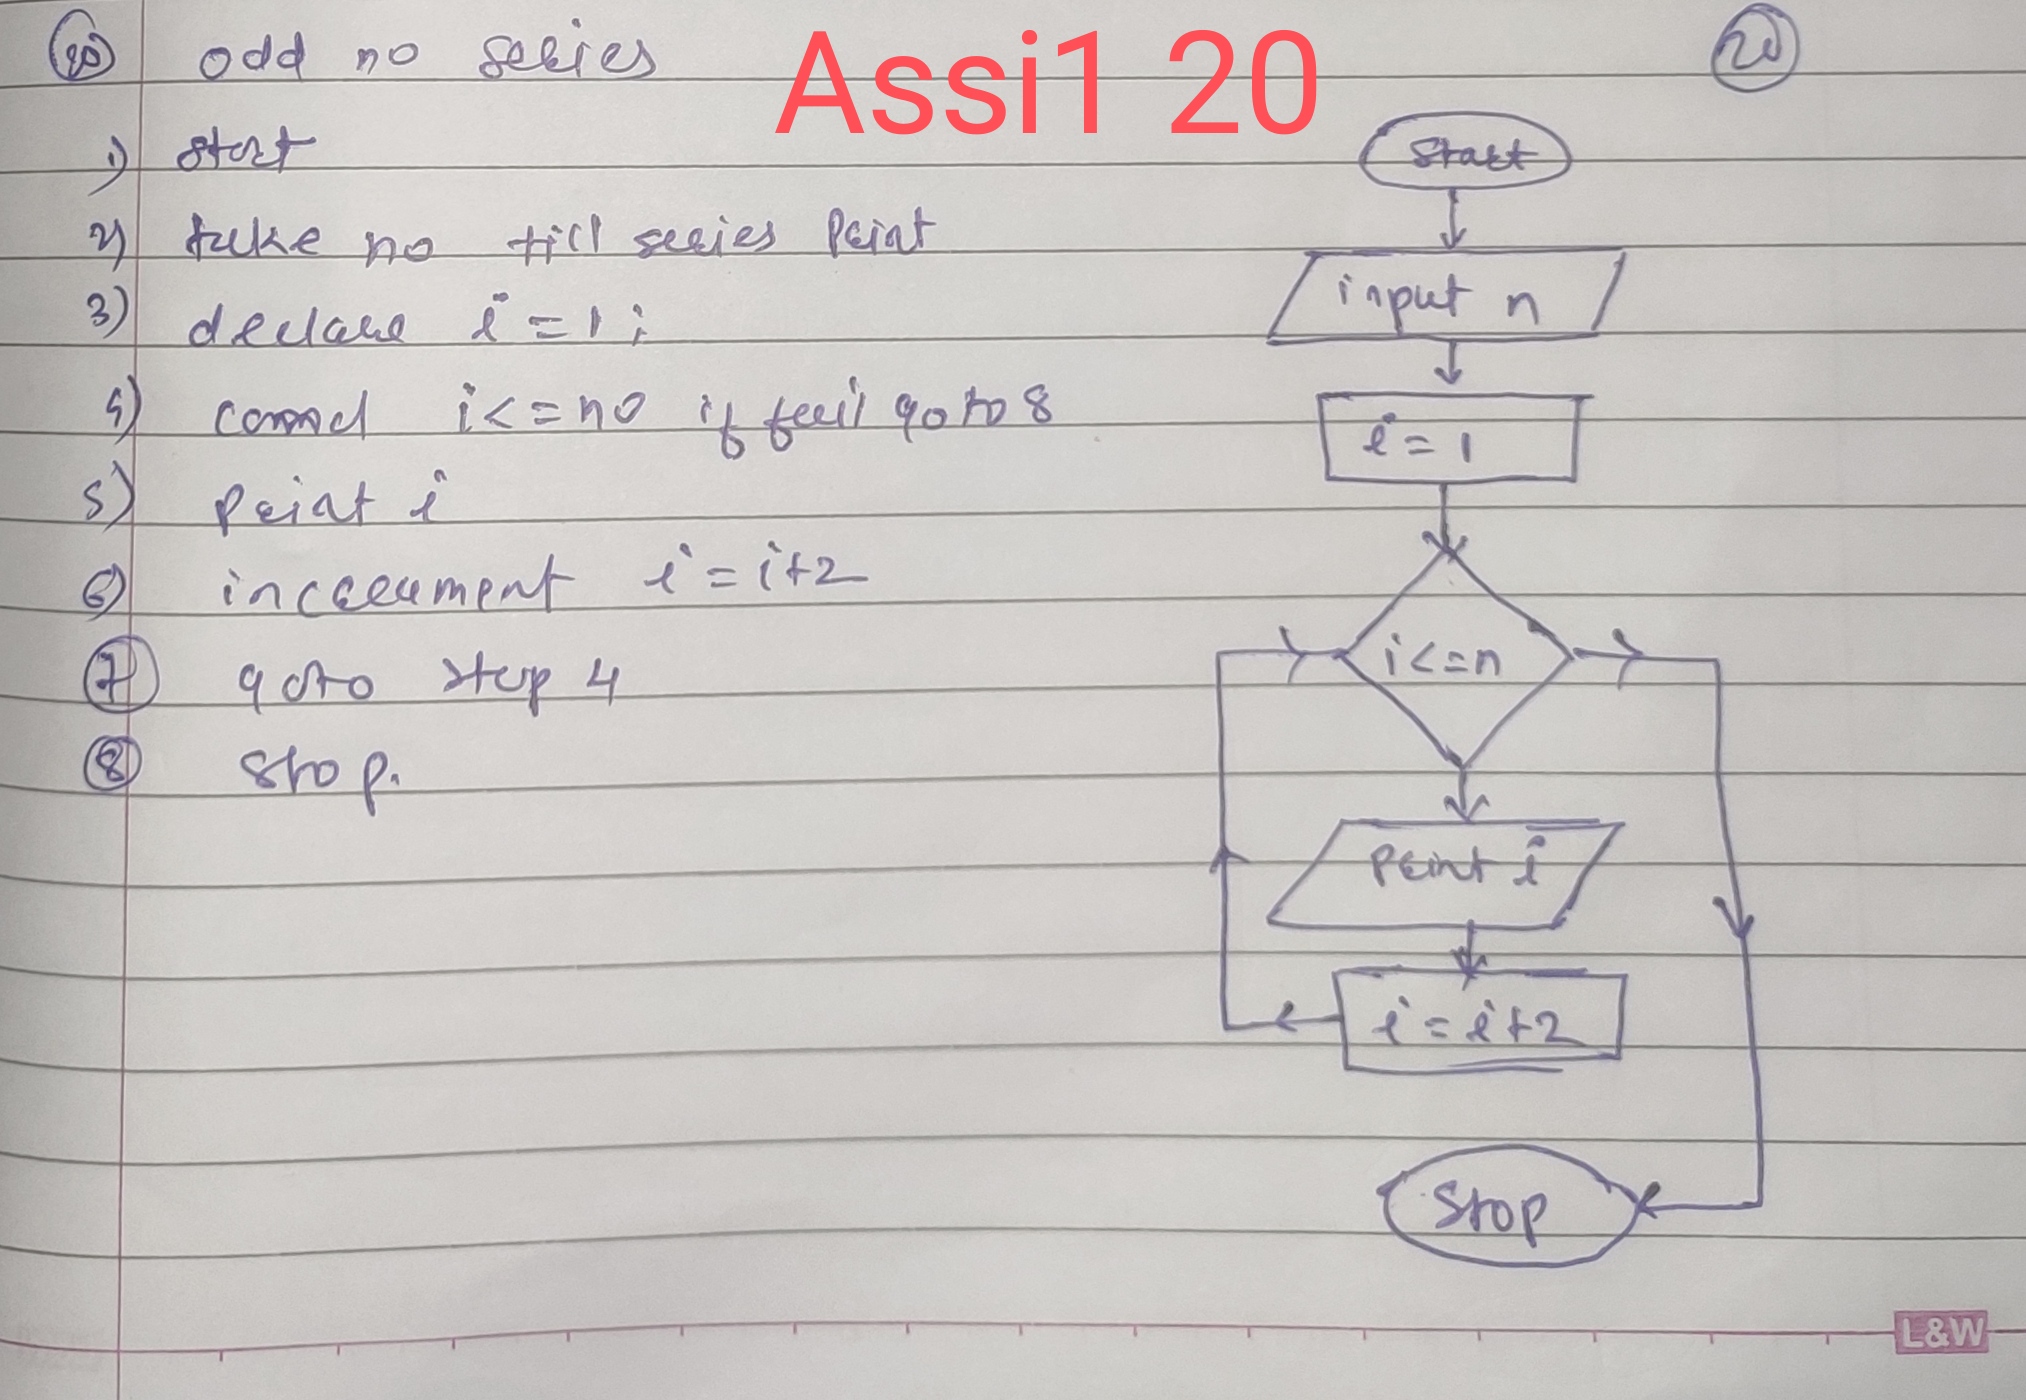 20 odd no series
Assi1 20
20
1) start
2) take no till series Print
3) declare i = 1 ;
4) i < = no if fail go to 8
5) Print i
6) increment i = i+2
7 goto step 4
8 stop.
Start
input n
i = 1
i <= n
Print i
i = i+2
Stop
L&W